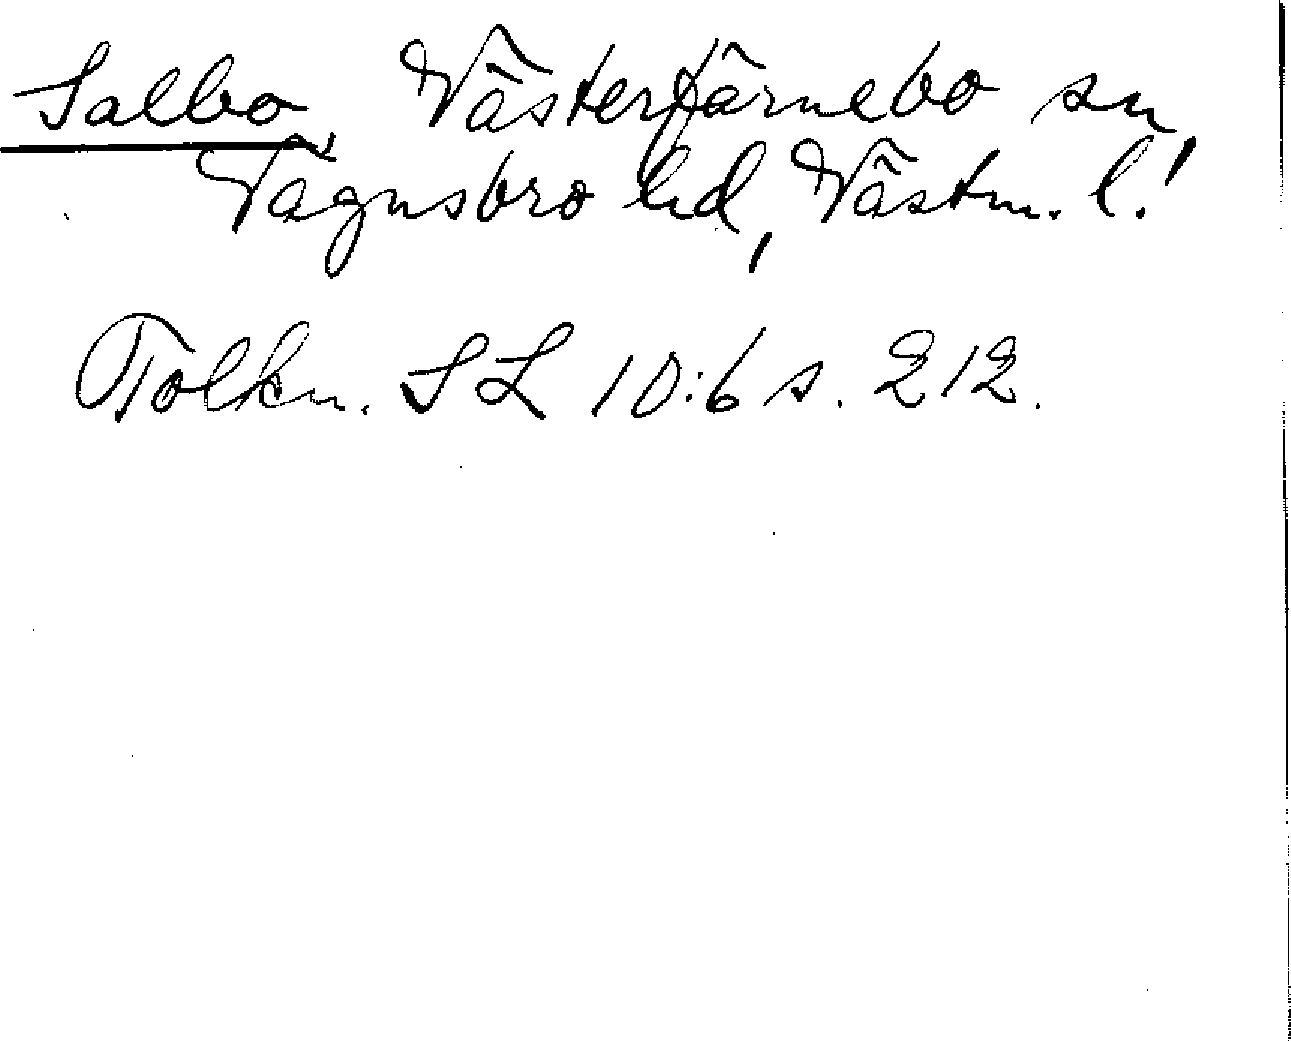 Salbo, Västerfärnebo sn,
Vagnsbro hd, Västm. l.
Tolkn. SL 10:6 s. 212.